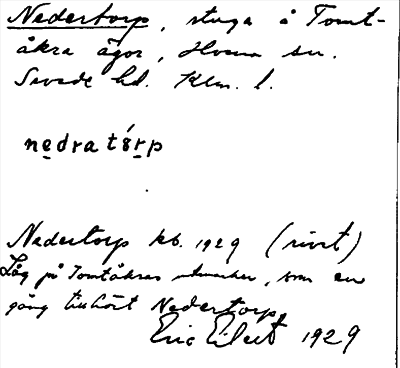 Nedertorp, stuga å Tomt-
åkra ägor, Hvena sn.
Sevede hd. Klm. l.
nedratórp
Nedertorp kb. 1929 (rivet)
Låg på Tomtåkras utmarker, som en
gång tillhört Nedertorp.
Eric Elert 1929